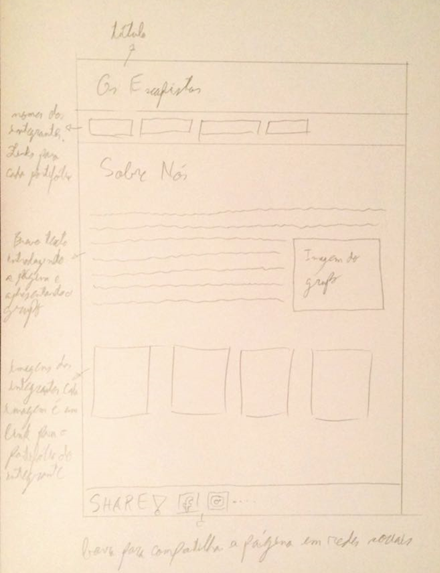 título
Os Escapistas
nomes dos
integrantes,
links para
cada portfólio
Sobre Nós
Breve texto
introduzindo
a página e
apresentando o
grupo
Imagem do
grupo
imagens dos
integrantes cada
imagem é um
link para o
portfolio do
integrante
SHARE! ....
barra para compartilha a página em redes sociais